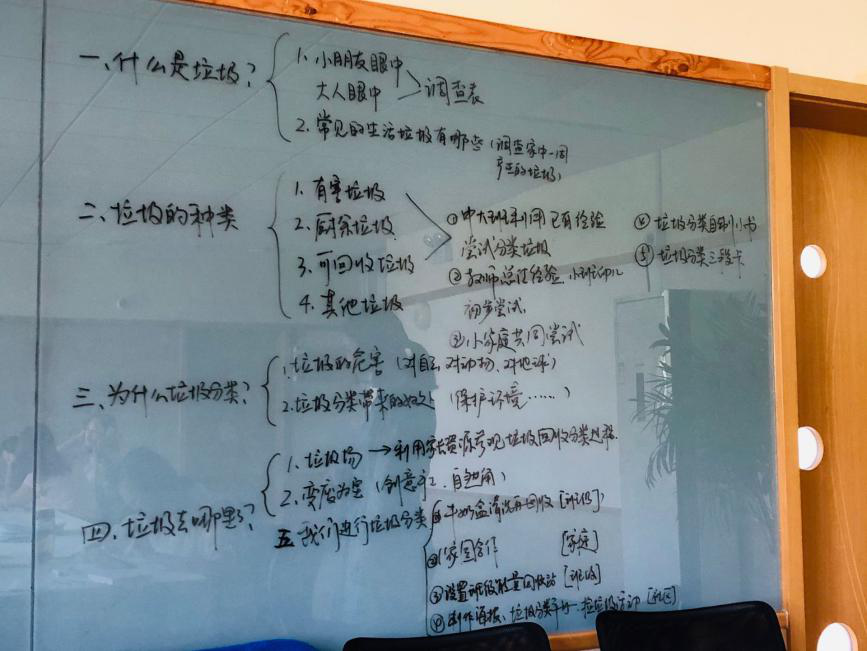 一、什么是垃圾?
1. 小朋友眼中
大人眼中
调查表
2. 常见的生活垃圾有哪些(调查家中一周
产生的垃圾)
二、垃圾的种类
1. 有害垃圾
2. 厨余垃圾
3. 可回收垃圾
4. 其他垃圾
① 中大班利用已有经验
尝试分类垃圾
② 教师总结经验,小班幼儿
初步尝试
③ 小家庭共同尝试
④ 垃圾分类自制小书
⑤ 垃圾分类三段卡
三、为什么垃圾分类?
1. 垃圾的危害(对自己、对动物、对地球)
2. 垃圾分类带来的好处(保护环境……)
四、垃圾去哪里了?
1. 垃圾场 → 利用家长资源参观垃圾回收分类过程.
2. 变废为宝(创意手工、自然角)
五 我们进行垃圾分类
① 牛奶盒清洗再回收 [班级]
② 家园合作 [家庭]
③ 设置班级能量回收站 [班级]
④ 制作海报、垃圾分类 捡垃圾活动 [社区]